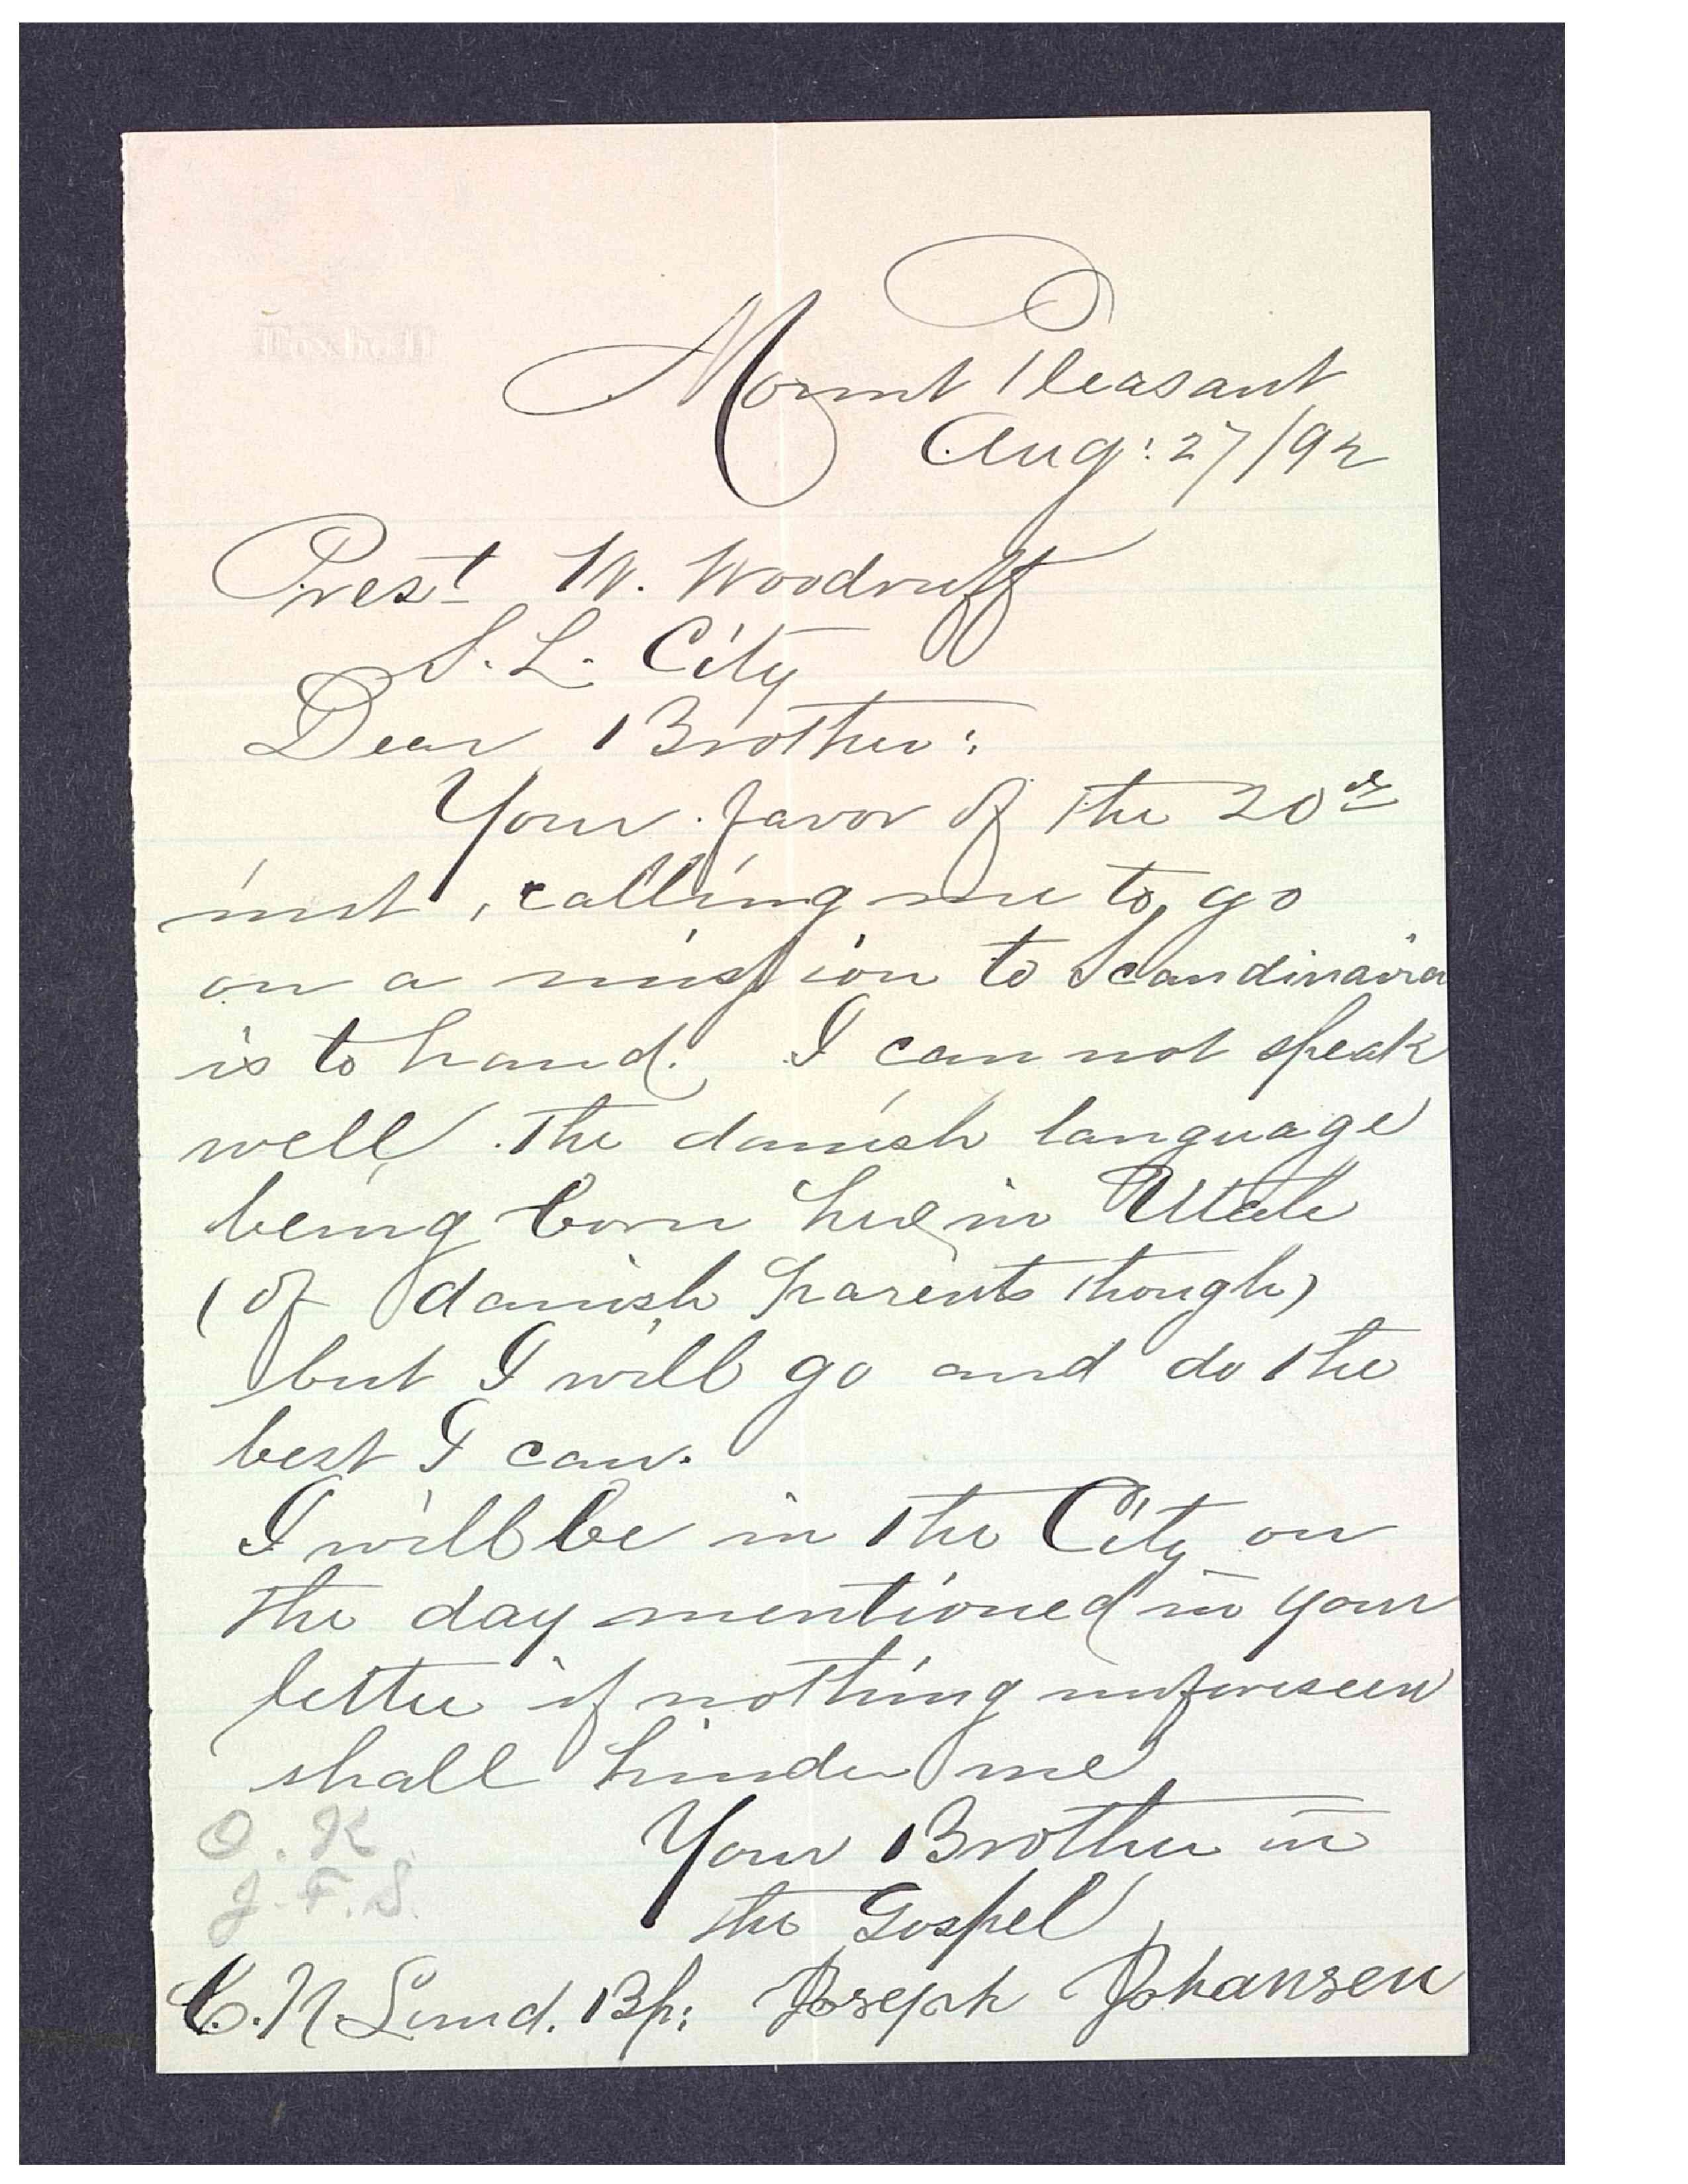 Mount Pleasant
Aug: 27/92
Prest W. Woodruff
S. L. City
Dear Brother:
Your favor of the 20th
inst, calling me to go
on a mission to Scandinavia
is to hand. I can not speak
well the danish language
being born here in Utah
(of danish parents though)
but I will go and do the
best I can.
I will be in the City on
the day mentioned in your
letter if nothing unforeseen
shall hinder me
Your Brother in
the Gospel,
Joseph Johansen
C. N. Lund. Bp:
O. K.
J. F. S.